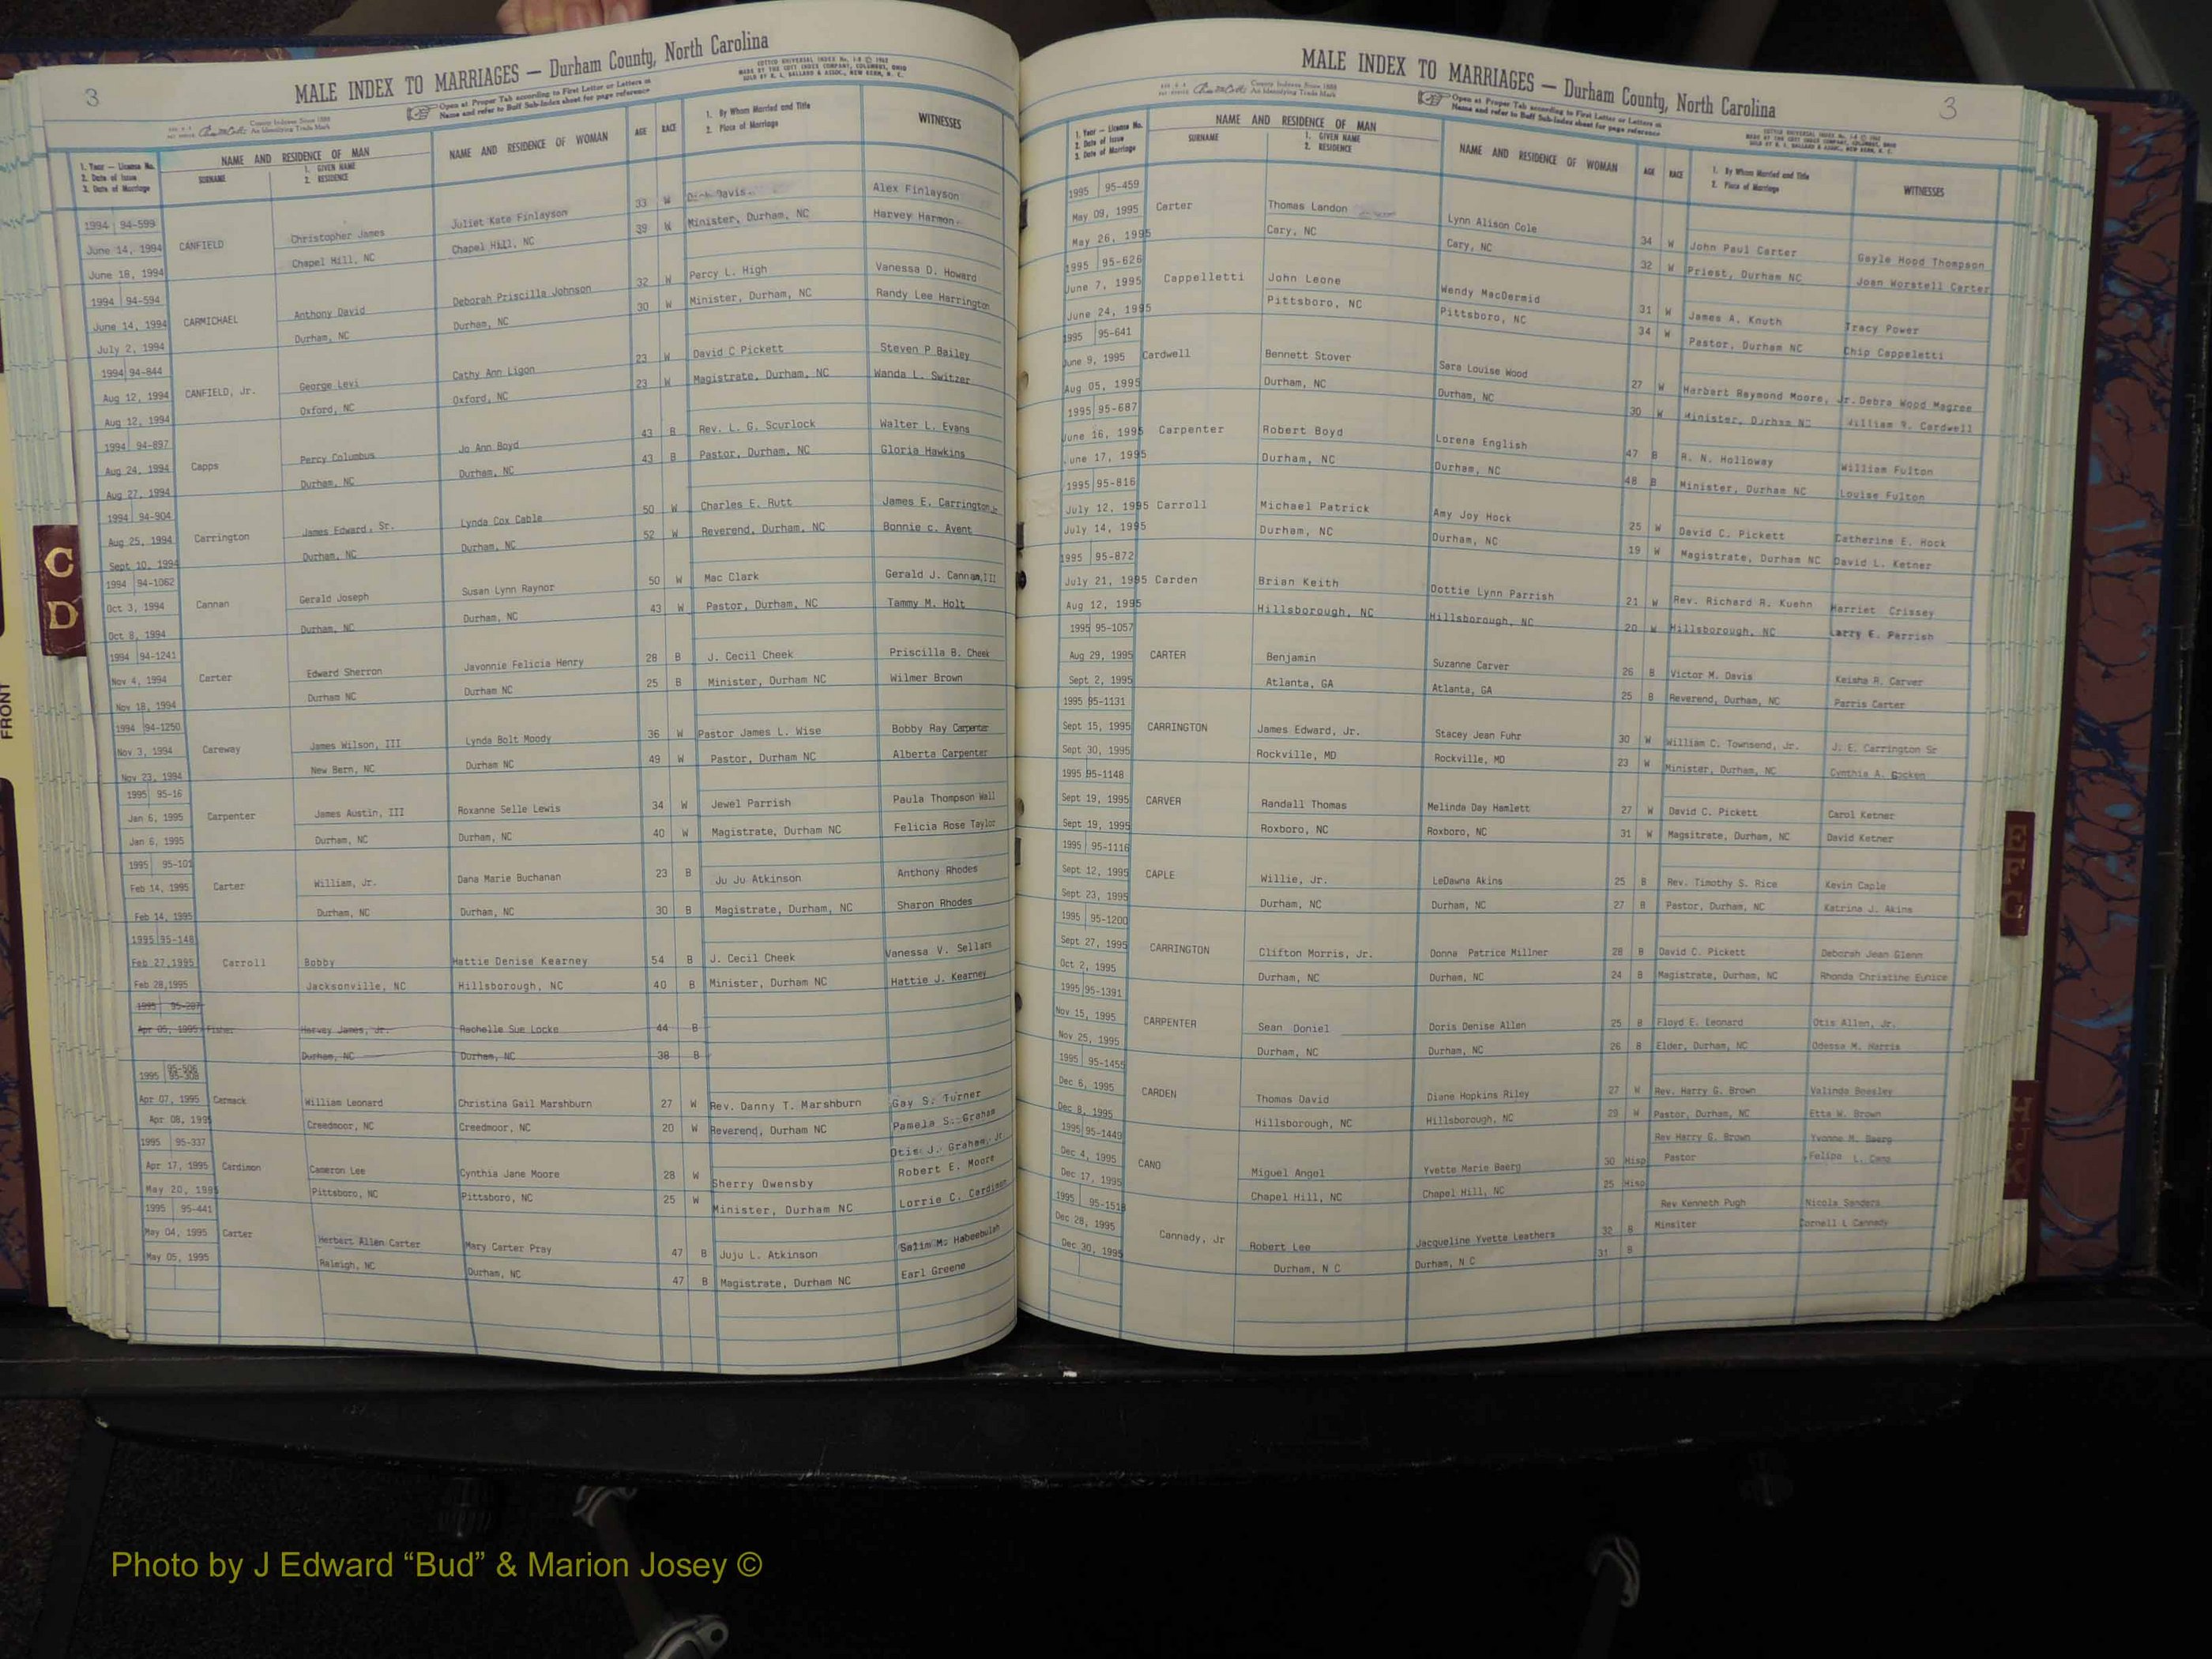 3
MALE INDEX TO MARRIAGES — Durham County, North Carolina
Open at Proper Tab according to First Letter or Letters in
Name and refer to Buff Sub-Index sheet for page reference
COTTED UNIVERSAL INDEX No. 1-8 © 1962
MADE BY THE COTT INDEX COMPANY, COLUMBUS, OHIO
SOLD BY O. G. BALLARD & ASSOC., NEW BERN, N. C.
County Indexes Since 1888
An Identifying Trade Mark
1. Year — License No.
2. Date of Issue
3. Date of Marriage
NAME AND RESIDENCE OF MAN
SURNAME
1. GIVEN NAME
2. RESIDENCE
NAME AND RESIDENCE OF WOMAN
AGE
RACE
1. By Whom Married and Title
2. Place of Marriage
WITNESSES
1994 94-599
June 14, 1994 CANFIELD Christopher James Juliet Kate Finlayson 33 W Davis Alex Finlayson
June 18, 1994 Chapel Hill, NC Chapel Hill, NC 39 W Minister, Durham, NC Harvey Harmon
1994 94-594
June 14, 1994 CARMICHAEL Anthony David Deborah Priscilla Johnson 32 W Percy L. High Vanessa D. Howard
July 2, 1994 Durham, NC Durham, NC 30 W Minister, Durham, NC Randy Lee Harrington
1994 94-844
Aug 12, 1994 CANFIELD, Jr. George Levi Cathy Ann Ligon 23 W David C Pickett Steven P Bailey
Aug 12, 1994 Oxford, NC Oxford, NC 23 W Magistrate, Durham, NC Wanda L. Switzer
1994 94-897
Aug 24, 1994 Capps Percy Columbus Jo Ann Boyd 43 B Rev. L. G. Scurlock Walter L. Evans
Aug 27, 1994 Durham, NC Durham, NC 43 B Pastor, Durham, NC Gloria Hawkins
1994 94-904
Aug 25, 1994 Carrington James Edward, Sr. Lynda Cox Cable 50 W Charles E. Rutt James E. Carrington Jr
Sept 10, 1994 Durham, NC Durham, NC 52 W Reverend, Durham, NC Bonnie c. Avent
1994 94-1062
Oct 3, 1994 Cannan Gerald Joseph Susan Lynn Raynor 50 W Mac Clark Gerald J. Cannan,III
Oct 8, 1994 Durham, NC Durham, NC 43 W Pastor, Durham, NC Tammy M. Holt
1994 94-1241
Nov 4, 1994 Carter Edward Sherron Javonnie Felicia Henry 28 B J. Cecil Cheek Priscilla B. Cheek
Nov 18, 1994 Durham NC Durham NC 25 B Minister, Durham NC Wilmer Brown
1994 94-1250
Nov 3, 1994 Careway James Wilson, III Lynda Bolt Moody 36 W Pastor James L. Wise Bobby Ray Carpenter
Nov 23, 1994 New Bern, NC Durham NC 49 W Pastor, Durham NC Alberta Carpenter
1995 95-16
Jan 6, 1995 Carpenter James Austin, III Roxanne Selle Lewis 34 W Jewel Parrish Paula Thompson Wall
Jan 6, 1995 Durham, NC Durham, NC 40 W Magistrate, Durham NC Felicia Rose Taylor
1995 95-101
Feb 14, 1995 Carter William, Jr. Dana Marie Buchanan 23 B Ju Ju Atkinson Anthony Rhodes
Feb 14, 1995 Durham, NC Durham, NC 30 B Magistrate, Durham, NC Sharon Rhodes
1995 95-148
Feb 27,1995 Carroll Bobby Hattie Denise Kearney 54 B J. Cecil Cheek Vanessa V. Sellars
Feb 28,1995 Jacksonville, NC Hillsborough, NC 40 B Minister, Durham NC Hattie J. Kearney
1995 95-287
Apr 05, 1995 Fisher Harvey James, Jr. Rachelle Sue Locke 44 B
Durham, NC Durham, NC 38 B
1995 95-308
Apr 07, 1995 Carmack William Leonard Christina Gail Marshburn 27 W Rev. Danny T. Marshburn Gay S. Turner
Apr 08, 1995 Creedmoor, NC Creedmoor, NC 20 W Reverend, Durham NC Pamela S. Graham
Otis J. Graham, Jr.
1995 95-337
Apr 17, 1995 Cardimon Cameron Lee Cynthia Jane Moore 28 W Sherry Owensby Robert E. Moore
May 20, 1995 Pittsboro, NC Pittsboro, NC 25 W Minister, Durham NC Lorrie C. Cardimon
1995 95-441
May 04, 1995 Carter Herbert Allen Carter Mary Carter Pray 47 B Juju L. Atkinson Salim M. Habeebulah
May 05, 1995 Raleigh, NC Durham, NC 47 B Magistrate, Durham NC Earl Greene
C
D
FRONT
MALE INDEX TO MARRIAGES — Durham County, North Carolina
3
County Indexes Since 1888
An Identifying Trade Mark
Open at Proper Tab according to First Letter or Letters in
Name and refer to Buff Sub-Index sheet for page reference
1. Year — License No.
2. Date of Issue
3. Date of Marriage
NAME AND RESIDENCE OF MAN
SURNAME
1. GIVEN NAME
2. RESIDENCE
NAME AND RESIDENCE OF WOMAN
AGE
RACE
1. By Whom Married and Title
2. Place of Marriage
WITNESSES
1995 95-459
May 09, 1995 Carter Thomas Landon Lynn Alison Cole 34 W John Paul Carter Gayle Hood Thompson
May 26, 1995 Cary, NC Cary, NC 32 W Priest, Durham NC Joan Worstell Carter
1995 95-626
June 7, 1995 Cappelletti John Leone Wendy MacDermid 31 W James A. Knuth Tracy Power
June 24, 1995 Pittsboro, NC Pittsboro, NC 34 W Pastor, Durham NC Chip Cappeletti
1995 95-641
June 9, 1995 Cardwell Bennett Stover Sara Louise Wood 27 W Harbert Raymond Moore, Jr. Debra Wood Magree
Aug 05, 1995 Durham, NC Durham, NC 30 W Minister, Durham NC William R. Cardwell
1995 95-687
June 16, 1995 Carpenter Robert Boyd Lorena English 47 B R. N. Holloway William Fulton
June 17, 1995 Durham, NC Durham, NC 48 B Minister, Durham NC Louise Fulton
1995 95-816
July 12, 1995 Carroll Michael Patrick Amy Joy Hock 25 W David C. Pickett Catherine E. Hock
July 14, 1995 Durham, NC Durham, NC 19 W Magistrate, Durham NC David L. Ketner
1995 95-872
July 21, 1995 Carden Brian Keith Dottie Lynn Parrish 21 W Rev. Richard R. Kuehn Harriet Crissey
Aug 12, 1995 Hillsborough, NC Hillsborough, NC 20 W Hillsborough, NC Larry E. Parrish
1995 95-1057
Aug 29, 1995 CARTER Benjamin Suzanne Carver 26 B Victor M. Davis Keisha R. Carver
Sept 2, 1995 Atlanta, GA Atlanta, GA 25 B Reverend, Durham, NC Parris Carter
1995 95-1131
Sept 15, 1995 CARRINGTON James Edward, Jr. Stacey Jean Fuhr 30 W William C. Townsend, Jr. J. E. Carrington Sr
Sept 30, 1995 Rockville, MD Rockville, MD 23 W Minister, Durham, NC Cynthia A.
1995 95-1148
Sept 19, 1995 CARVER Randall Thomas Melinda Day Hamlett 27 W David C. Pickett Carol Ketner
Sept 19, 1995 Roxboro, NC Roxboro, NC 31 W Magsitrate, Durham, NC David Ketner
1995 95-1116
Sept 12, 1995 CAPLE Willie, Jr. LeDawna Akins 25 B Rev. Timothy S. Rice Kevin Caple
Sept 23, 1995 Durham, NC Durham, NC 27 B Pastor, Durham, NC Katrina J. Akins
1995 95-1200
Sept 27, 1995 CARRINGTON Clifton Morris, Jr. Donna Patrice Millner 28 B David C. Pickett Deborah Jean Glenn
Oct 2, 1995 Durham, NC Durham, NC 24 B Magistrate, Durham, NC Rhonda Christine Eunice
1995 95-1391
Nov 15, 1995 CARPENTER Sean Doniel Doris Denise Allen 25 B Floyd E. Leonard Otis Allen, Jr.
Nov 25, 1995 Durham, NC Durham, NC 26 B Elder, Durham, NC Odessa M. Harris
1995 95-1455
Dec 6, 1995 CARDEN Thomas David Diane Hopkins Riley 27 W Rev. Harry G. Brown Valinda Beasley
Dec 8, 1995 Hillsborough, NC Hillsborough, NC 29 W Pastor, Durham, NC Etta W. Brown
1995 95-1449 Rev Harry G. Brown Yvonne M. Baerg
Dec 4, 1995 CANO Miguel Angel Yvette Marie Baerg 30 Hisp Pastor Felipe L. Cano
Dec 17, 1995 Chapel Hill, NC Chapel Hill, NC 25 Hisp
1995 95-1518 Rev Kenneth Pugh Nicola Sanders
Dec 28, 1995 Cannady, Jr Robert Lee Jacqueline Yvette Leathers 32 B Minsiter Cornell L Cannady
Dec 30, 1995 Durham, N C Durham, N C 31 B
E
F
G
H
Photo by J Edward “Bud” & Marion Josey ©